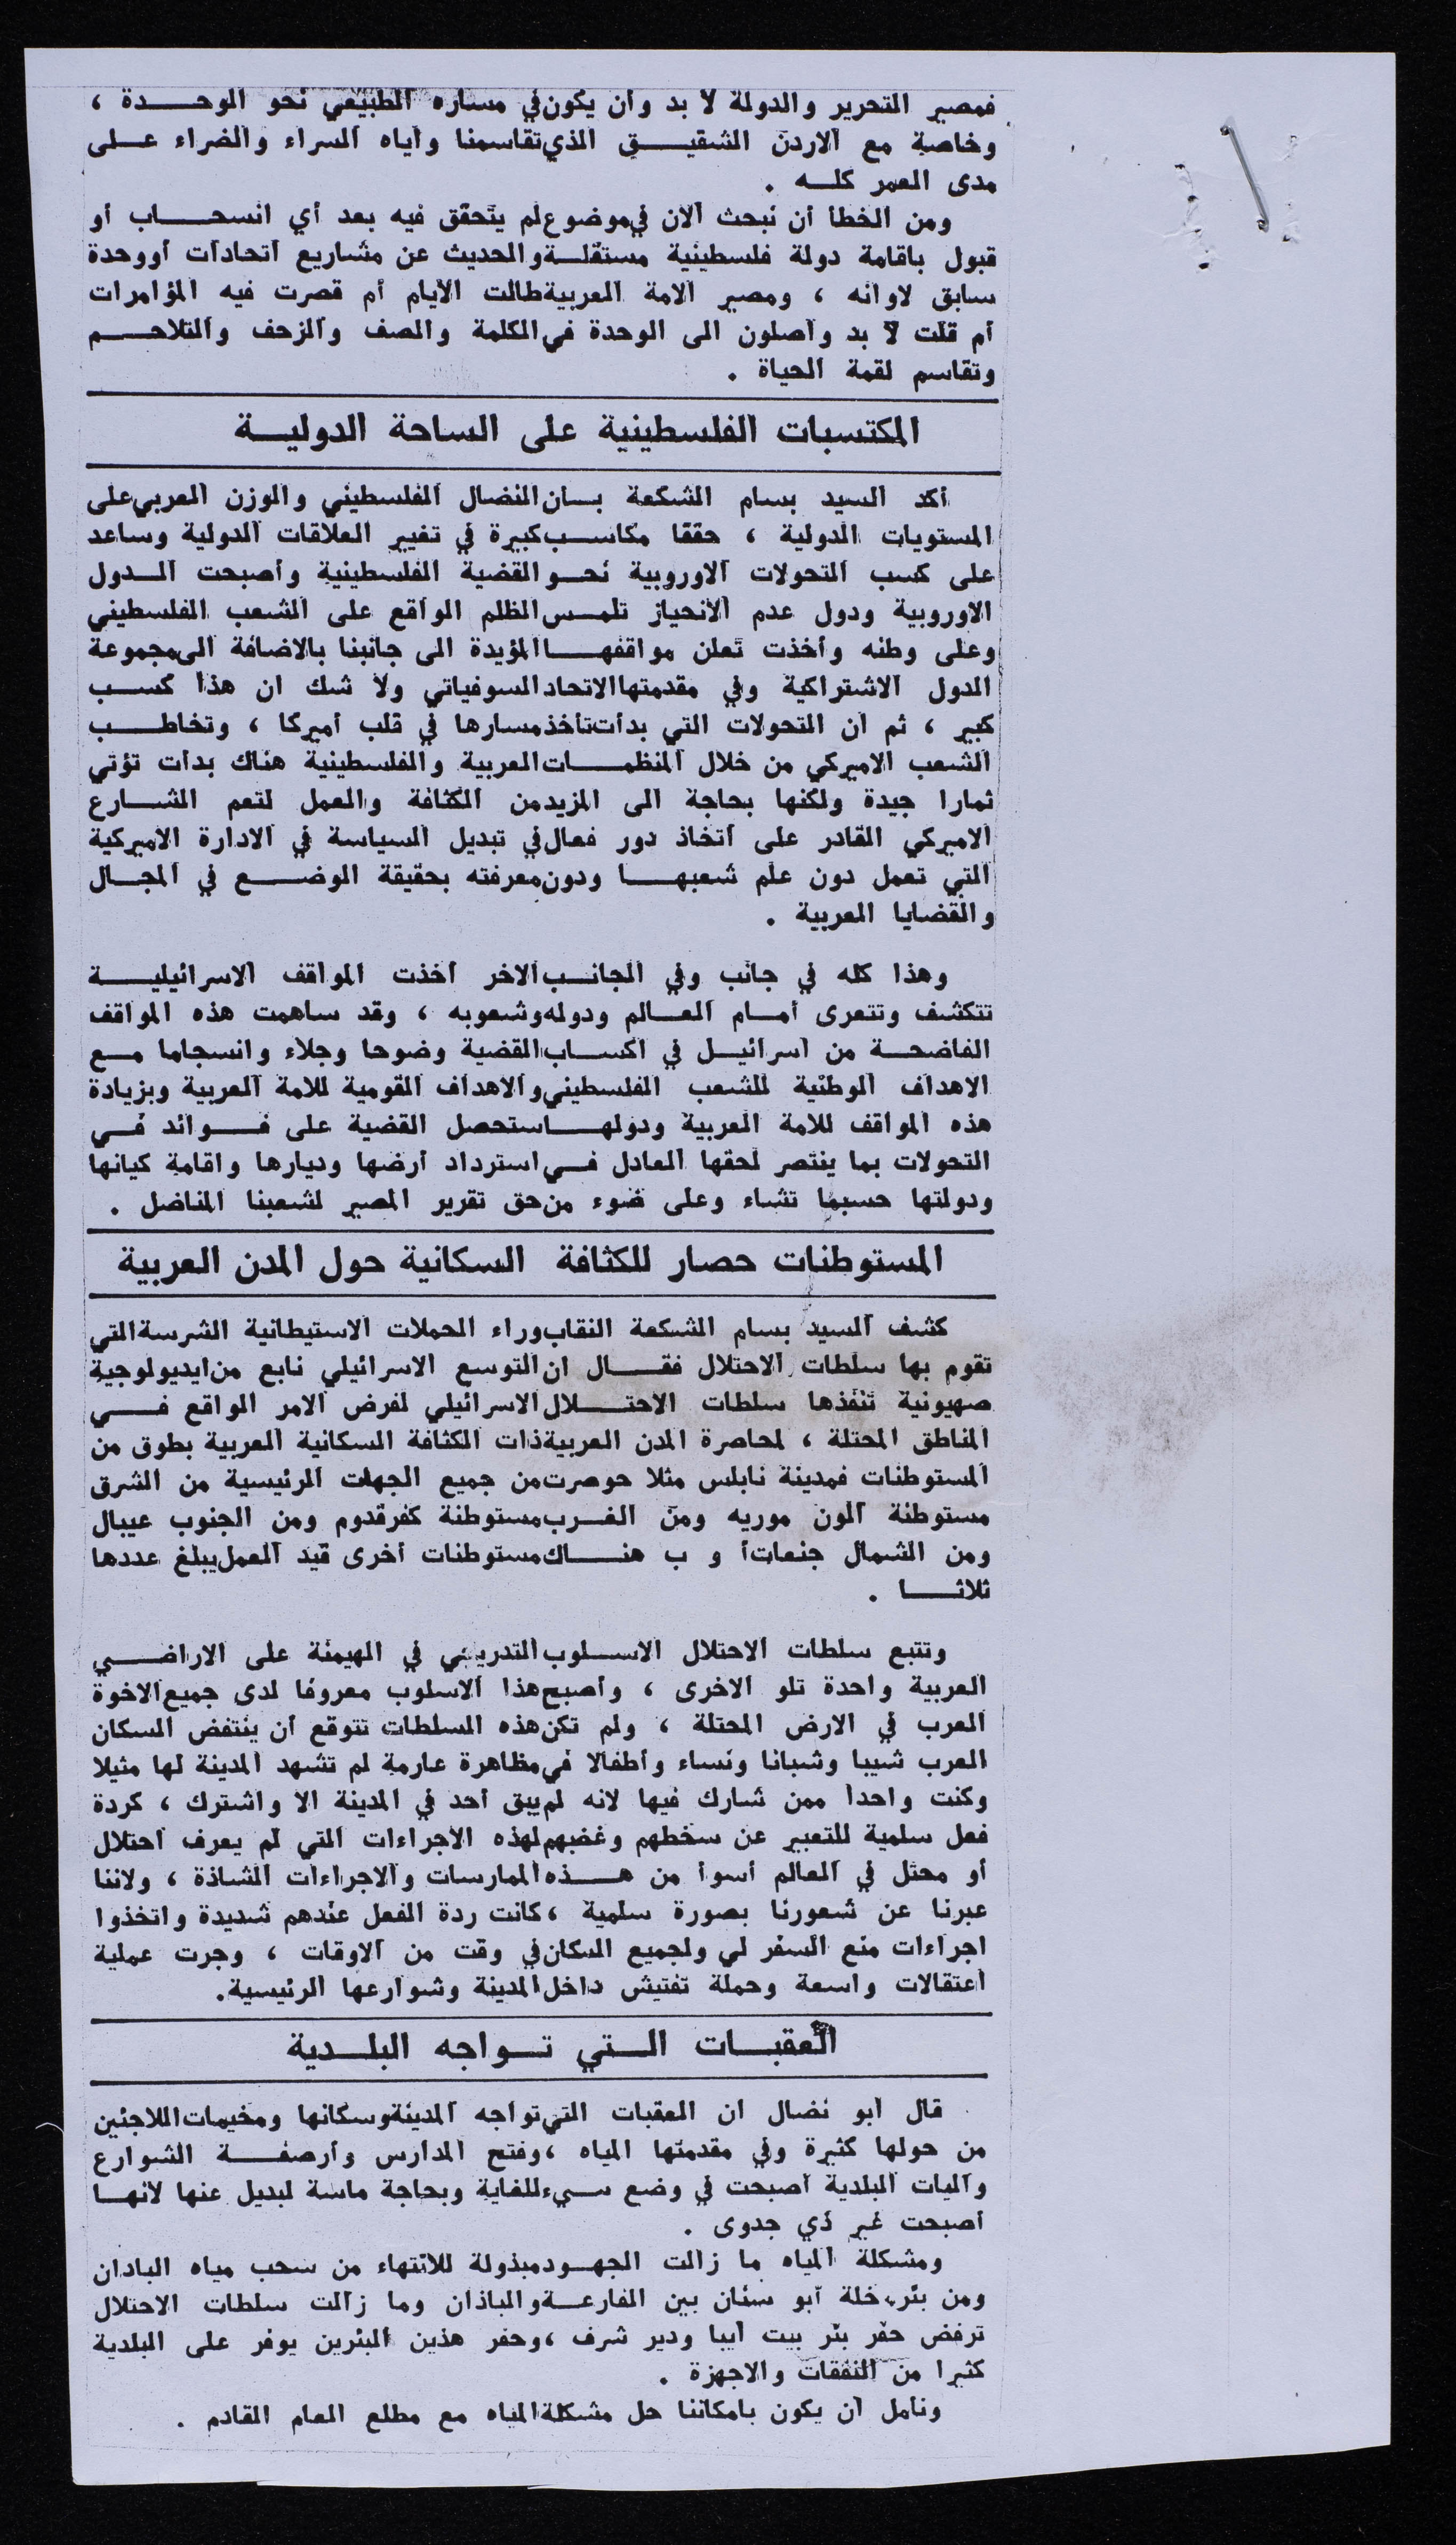 فمصير التحرير والدولة لا بد وأن يكون في مساره الطبيعي نحو الوحدة ،
وخاصة مع الاردن الشقيق الذي تقاسمنا واياه السراء والضراء على
مدى العمر كله .
ومن الخطأ أن نبحث الان في موضوع لم يتحقق فيه بعد أي انسحاب أو
قبول باقامة دولة فلسطينية مستقلة والحديث عن مشاريع اتحادات أووحدة
سابق لاوانه ، ومصير الامة العربية طالت الايام أم قصرت فيه المؤامرات
أم قلت لا بد واصلون الى الوحدة في الكلمة والصف والزحف والتلاحم
وتقاسم لقمة الحياة .
المكتسبات الفلسطينية على الساحة الدولية
أكد السيد بسام الشكعة بان النضال الفلسطيني والوزن العربي على
المستويات الدولية ، حققا مكاسب كبيرة في تغيير العلاقات الدولية وساعد
على كسب التحولات الاوروبية نحو القضية الفلسطينية وأصبحت الدول
الاوروبية ودول عدم الانحياز تلمس الظلم الواقع على الشعب الفلسطيني
وعلى وطنه وأخذت تعلن مواقفها المؤيدة الى جانبنا بالاضافة الى مجموعة
الدول الاشتراكية وفي مقدمتها الاتحاد السوفياتي ولا شك ان هذا كسب
كبير ، ثم ان التحولات التي بدأت تأخذ مسارها في قلب أميركا ، وتخاطب
الشعب الاميركي من خلال المنظمات العربية والفلسطينية هناك بدأت تؤتي
ثمارا جيدة ولكنها بحاجة الى المزيد من الكثافة والعمل لتعم الشارع
الاميركي القادر على اتخاذ دور فعال في تبديل السياسة في الادارة الاميركية
التي تعمل دون علم شعبها ودون معرفته بحقيقة الوضع في المجال
والقضايا العربية .
وهذا كله في جانب وفي الجانب الاخر اخذت المواقف الاسرائيلية
تتكشف وتتعرى أمام العالم ودوله وشعوبه ، وقد ساهمت هذه المواقف
الفاضحة من اسرائيل في اكساب القضية وضوحا وجلاء وانسجاما مع
الاهداف الوطنية للشعب الفلسطيني والاهداف القومية للامة العربية وبزيادة
هذه المواقف للامة العربية ودولها ستحصل القضية على فوائد في
التحولات بما ينتصر لحقها العادل في استرداد أرضها وديارها واقامة كيانها
ودولتها حسبما تشاء وعلى ضوء من حق تقرير المصير لشعبنا المناضل .
المستوطنات حصار للكثافة السكانية حول المدن العربية
كشف السيد بسام الشكعة النقاب وراء الحملات الاستيطانية الشرسة التي
تقوم بها سلطات الاحتلال فقال ان التوسع الاسرائيلي نابع من ايديولوجية
صهيونية تنفذها سلطات الاحتلال الاسرائيلي لفرض الامر الواقع في
المناطق المحتلة ، لمحاصرة المدن العربية ذات الكثافة السكانية العربية بطوق من
المستوطنات فمدينة نابلس مثلا حوصرت من جميع الجهات الرئيسية من الشرق
مستوطنة الون موريه ومن الغرب مستوطنة كفر قدوم ومن الجنوب عيبال
ومن الشمال جنعات أ و ب هناك مستوطنات أخرى قيد العمل يبلغ عددها
ثلاثا .
وتتبع سلطات الاحتلال الاسلوب التدريبي في الهيمنة على الاراضي
العربية واحدة تلو الاخرى ، وأصبح هذا الاسلوب معروفا لدى جميع الاخوة
العرب في الارض المحتلة ، ولم تكن هذه السلطات تتوقع أن ينتفض السكان
العرب شيبا وشبانا ونساء وأطفالا في مظاهرة عارمة لم تشهد المدينة لها مثيلا
وكنت واحدا ممن شارك فيها لانه لم يبق أحد في المدينة الا واشترك ، كردة
فعل سلمية للتعبير عن سخطهم وغضبهم لهذه الاجراءات التي لم يعرف احتلال
أو محتل في العالم أسوأ من هذه الممارسات والاجراءات الشاذة ، ولاننا
عبرنا عن شعورنا بصورة سلمية ، كانت ردة الفعل عندهم شديدة واتخذوا
اجراءات منع السفر لي ولجميع السكان في وقت من الاوقات ، وجرت عملية
اعتقالات واسعة وحملة تفتيش داخل المدينة وشوارعها الرئيسية.
العقبات التي تواجه البلدية
قال ابو نضال ان العقبات التي تواجه المدينة وسكانها ومخيمات اللاجئين
من حولها كثيرة وفي مقدمتها المياه ، وفتح المدارس وأرصفة الشوارع
وآليات البلدية أصبحت في وضع سيء للغاية وبحاجة ماسة لبديل عنها لانها
أصبحت غير ذي جدوى .
ومشكلة المياه ما زالت الجهود مبذولة للانتهاء من سحب مياه الباذان
ومن بئر خلة أبو سنان بين الفارعة والباذان وما زالت سلطات الاحتلال
ترفض حفر بئر بيت ايبا ودير شرف ، وحفر هذين البئرين يوفر على البلدية
كثيرا من النفقات والاجهزة .
ونأمل ان يكون بامكاننا حل مشكلة المياه مع مطلع العام القادم .